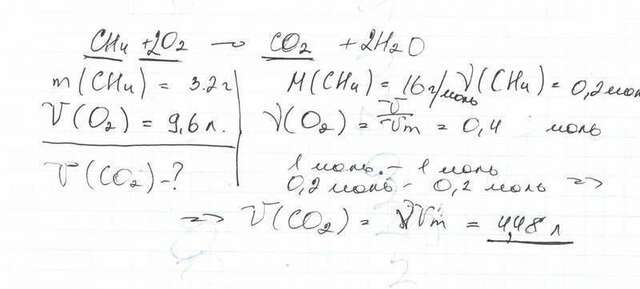 CH4 + 2O2 → CO2 + 2H2O
m(CH4) = 3.2 г
V(O2) = 9,6 л.
V(CO2) - ?
M(CH4) = 16 г/моль ν(CH4) = 0,2 моль
ν(O2) = V/Vm = 0,4 моль
1 моль. - 1 моль
0,2 моль - 0,2 моль =>
=> V(CO2) = νVm = 4,48 л